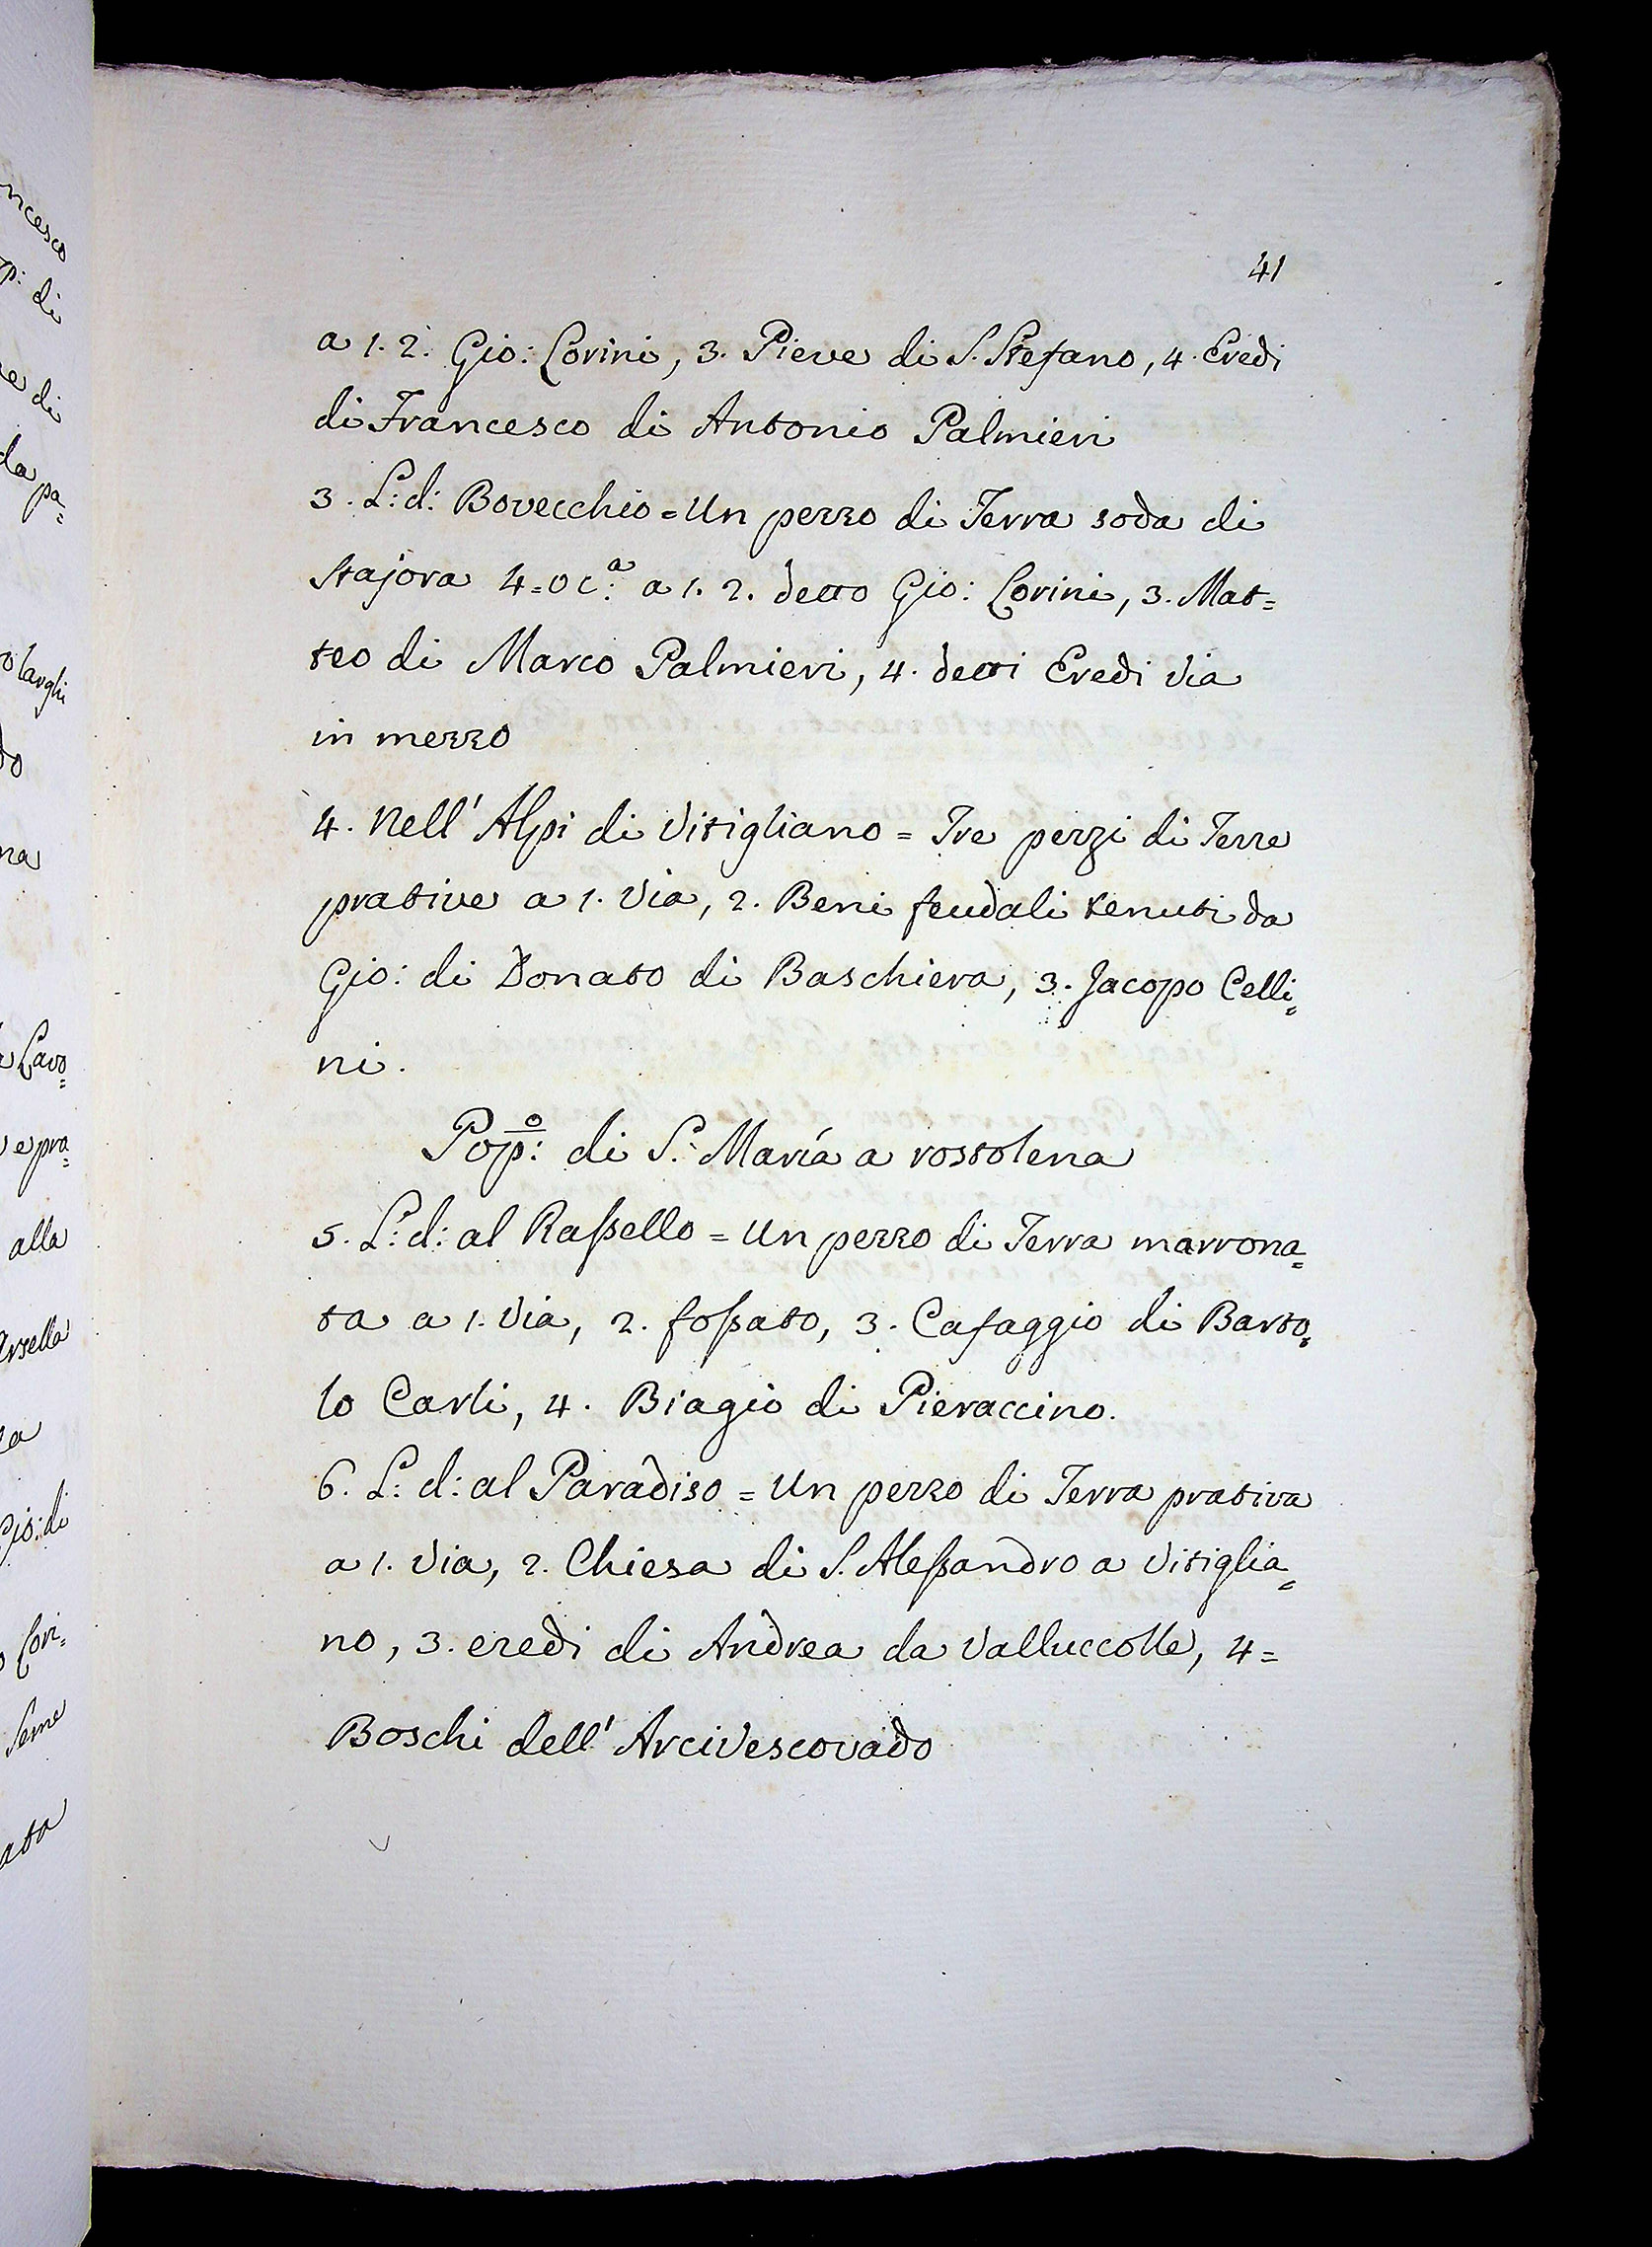 ncesco
p: di
e di
da pa=
o larghi
do
na
a Lavo=
e pra=
alla
arsella
a
Gio: di
Cori=
Seme
ato
41
a 1. 2. Gio: Corini, 3. Pieve di S. Stefano, 4. Eredi
di Francesco di Antonio Palmieri
3. L: d: Bovecchio = Un pezzo di Terra soda di
Stajora 4=0 c.ª a 1. 2. detto Gio: Corini, 3. Mat=
teo di Marco Palmieri, 4. detti Eredi Via
in mezzo
4. Nell' Alpi di Vitigliano = Tre pezzi di Terre
prative a 1. Via, 2. Beni feudali tenuti da
Gio: di Donato di Baschiera, 3. Jacopo Celli=
ni.
Pop:º di S. Maria a rostolena
5. L: d: al Rassello = Un pezzo di Terra marrona=
ta a 1. Via, 2. fossato, 3. Cafaggio di Barto=
lo Carli, 4. Biagio di Pieraccino.
6. L: d: al Paradiso = Un pezzo di Terra prativa
a 1. Via, 2. Chiesa di S. Alessandro a Vitiglia=
no, 3. eredi di Andrea da Valluccole, 4=
Boschi dell' Arcivescovado